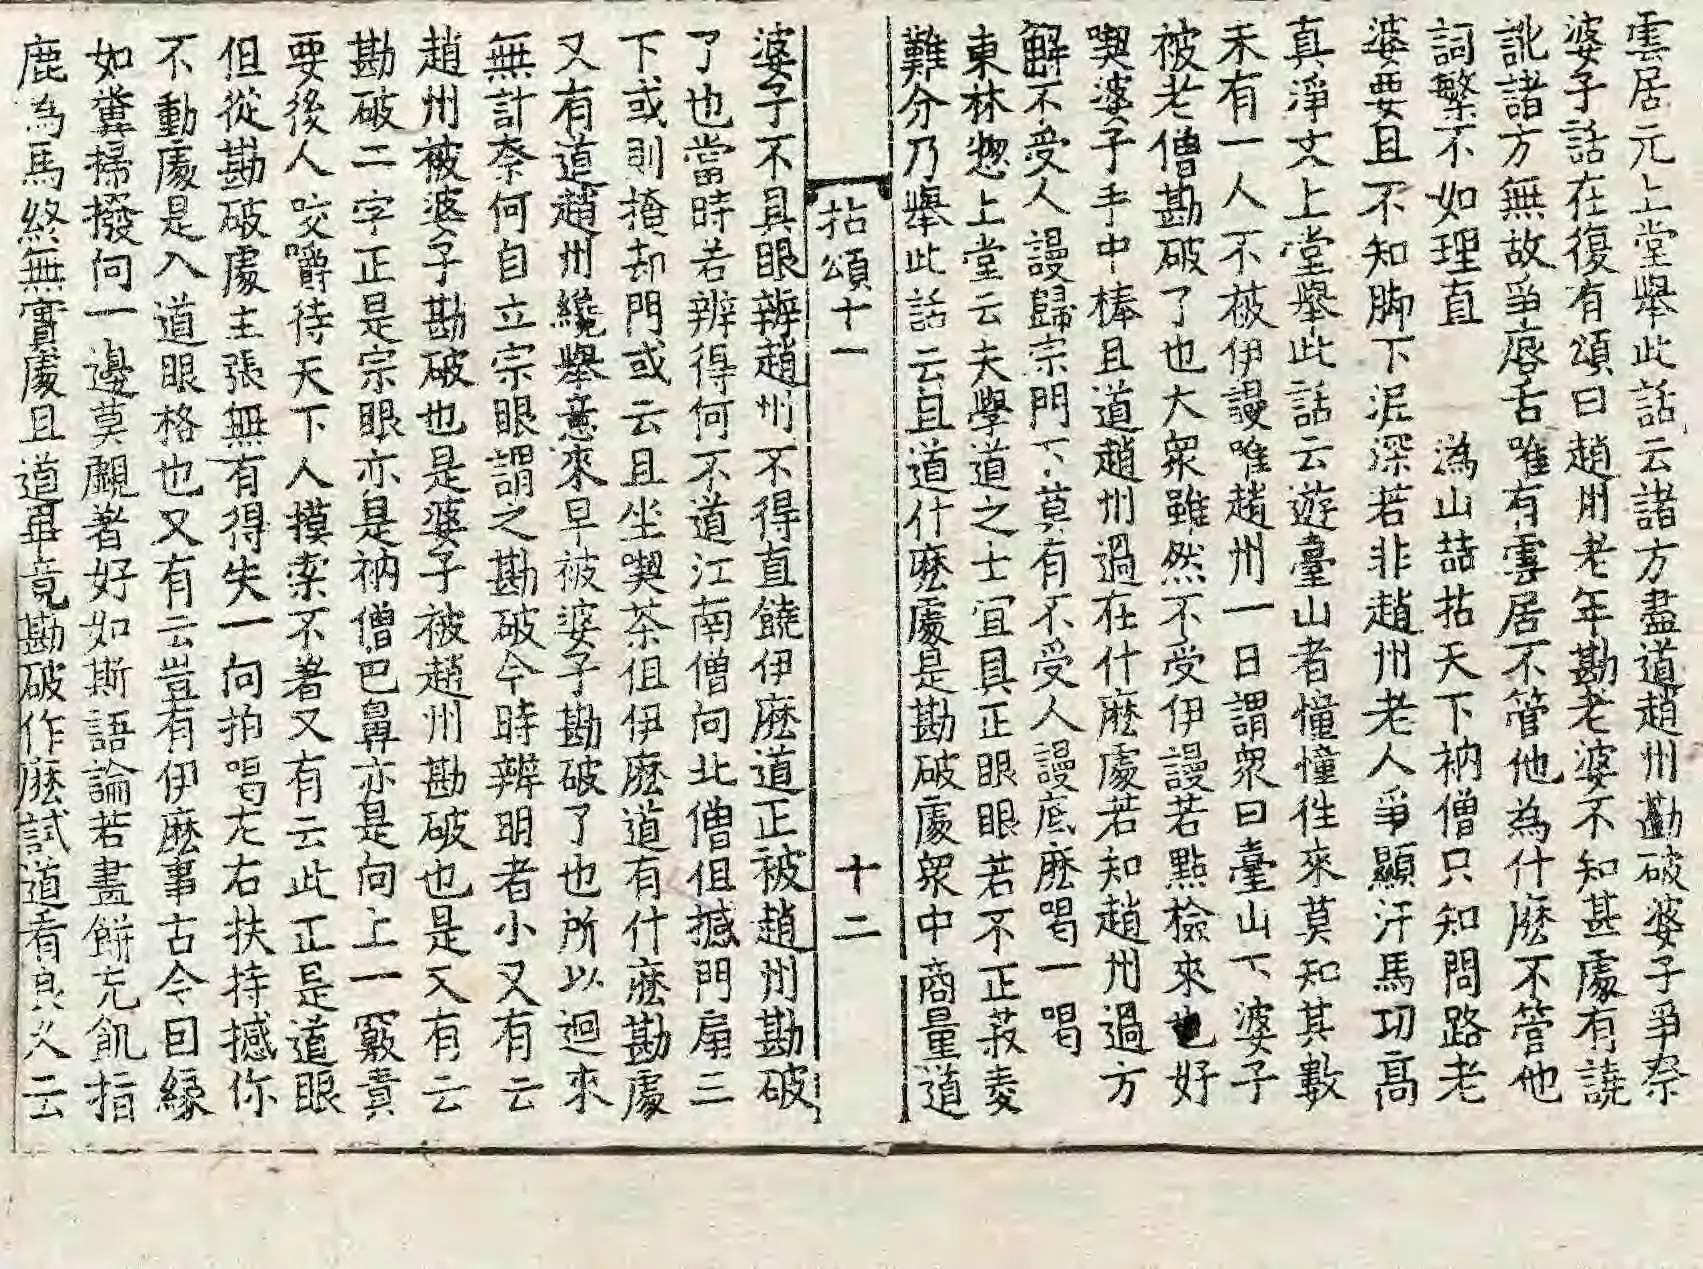 雲居元上堂舉此話云諸方盡道趙州勘破婆子爭柰
婆子話在復有頌曰趙州老年勘老婆不知甚處有譊
訛諸方無故爭唇舌唯有雲居不管他為什麽不管他
詞繁不如理直　　溈山喆拈天下衲僧只知問路老
婆要且不知脚下泥深若非趙州老人爭顯汗馬功高
真淨文上堂舉此話云遊臺山者憧憧往來莫知其數
未有一人不被伊謾唯趙州一日謂衆曰臺山下婆子
被老僧勘破了也大衆雖然不受伊謾若點檢來也好
喫婆子手中棒且道趙州過在什麽處若知趙州過方
解不受人謾歸宗門下莫有不受人謾底麽喝一喝
東林惣上堂云夫學道之士宜具正眼眼若不正菽麦
難分乃舉此話云且道什麽處是勘破處衆中商量道
拈頌十一　十二
婆子不具眼辨趙州不得直饒伊麽道正被趙州勘破
了也當時若辨得何不道江南僧向北僧但撼門扇三
下或則掩却門或云且坐喫茶但伊麽道有什麽勘處
又有道趙州纔舉意來早被婆子勘破了也所以迴來
無計柰何自立宗眼謂之勘破今時辨明者小又有云
趙州被婆子勘破也是婆子被趙州勘破也是又有云
勘破二字正是宗眼亦是衲僧巴鼻亦是向上一竅責
要後人咬嚼待天下人摸索不著又有云此正是道眼
但從勘破處主張無有得失一向拍喝左右扶持撼你
不動處是入道眼格也又有云豈有伊麽事古今因緣
如糞掃撥向一邊莫覷著好如斯語論若畫餠充飢指
鹿為馬終無實處且道畢竟勘破作麽試道看良久云